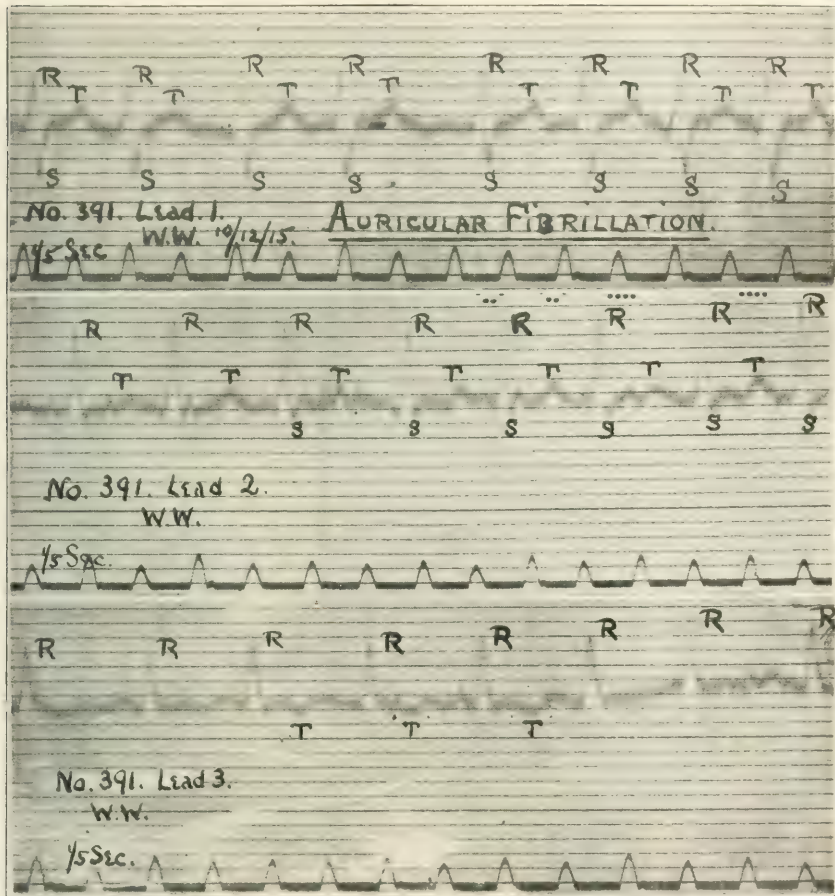 R R R R R R R R
T T T T T T T
S S S S S S S S
No. 391. Lead. 1. AURICULAR FIBRILLATION.
W.W. 10/12/15.
1/5 Sec
R R R R R R R R
T T T T T T T
S S S S S S
No. 391. Lead 2.
W.W.
1/5 Sec.
R R R R R R R R
T T T
No. 391. Lead 3.
W.W.
1/5 Sec.